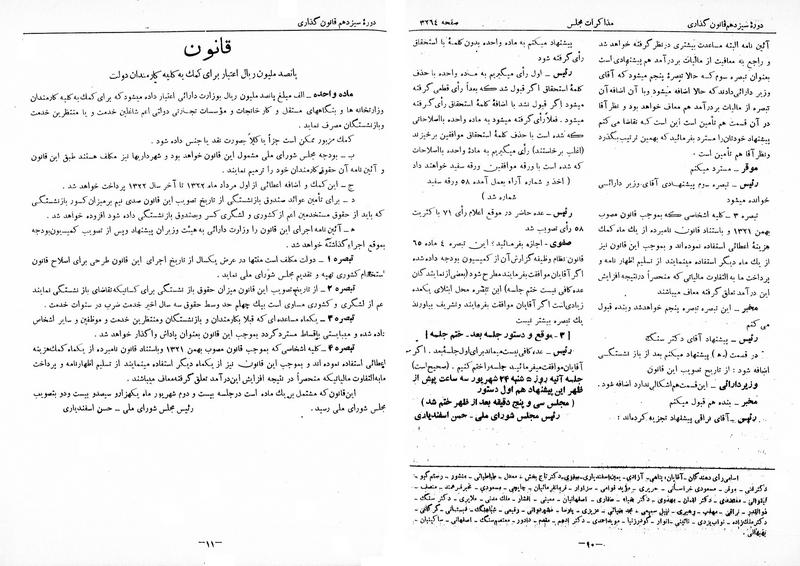 دورهٔ سیزدهم قانون گذاری
مذاکرات مجلس
صفحه ۳۲۶۴
آئین نامه البته مساعدت بیشتری در نظر گرفته خواهد شد
و راجع به معافیت از مالیات بر درآمد هم پیشنهادی است
بعنوان تبصره سوم که حالا تبصرهٔ پنجم میشود که آقای
وزیر دارائی دادند که حالا اضافه میشود و با آن اضافه آن
تبصره از مالیات بر درآمد هم معاف خواهد بود و نظر آقا
در آن قسمت هم تأمین است این است که تقاضا می کنم
پیشنهاد خودتان را مسترد بفرمائید که بهمین ترتیب بگذرد
و نظر آقا هم تأمین است .
موقر - مسترد میکنم
رئیس - تبصره سوم پیشنهادی آقای وزیر دارائی
خوانده میشود
تبصره ۳ - کلیه اشخاصی که بموجب قانون مصوب
بهمن ۱۳۲۱ و باستناد قانون نامبرده از یک ماه کمک
هزینهٔ اعطائی استفاده نموده اند و بموجب این قانون نیز
از یک ماه دیگر استفاده مینمایند از تسلیم اظهار نامه و
پرداخت ما به التفاوت مالیاتی که منحصراً در نتیجه افزایش
این درآمد تعلق گرفته معاف میباشند
مخبر - این تبصره تبصره پنجم خواهد شد و بنده قبول
می کنم
رئیس - پیشنهاد آقای دکتر سنگ
در قسمت (د) پیشنهاد میکنم بعد از باز نشستگی
اضافه شود : از تاریخ تصویب این قانون
وزیر دارائی - این قسمت هم اشکالی ندارد اضافه شود .
مخبر - بنده هم قبول میکنم
رئیس - آقای نراقی پیشنهاد تجزیه کرده اند :
پیشنهاد میکنم به ماده واحده بدون کلمهٔ با استحقاق
رأی گرفته شود
رئیس - اول رأی میگیریم به ماده واحده با حذف
کلمهٔ استحقاق اگر قبول شد که بعداً رأی قطعی گرفته
میشود اگر قبول نشد با اضافهٔ کلمهٔ استحقاق رأی گرفته
میشود . فعلاً رأی گرفته میشود به ماده واحده با اصلاحاتی
که شده است با حذف کلمهٔ استحقاق موافقین برخیزند
(اغلب برخاستند) رأی میگیریم به مادهٔ واحده با اصلاحاتی
که شده است با ورقه موافقین ورقه سفید خواهند داد
( اخذ و شماره آراء بعمل آمده ۵۸ ورقه سفید
شماره شد )
رئیس - عده حاضر در موقع اعلام رأی ۷۱ با کثریت
۵۸ رأی تصویب شد
صفوی - اجازه بفرمائید ؛ این تبصره ۴ ماده ۶۵
قانون نظام وظیفه گزارش آن از کمیسیون بودجه داده شده
اگر آقایان موافقت بفرمایند مطرح شود (بعضی از نمایندگان
عده کافی نیست ختم جلسه) این تبصره محل ابتلای یکعده
زیادی است اگر آقایان موافقت بفرمایند و تشریف بیاورند
یک تبصره بیشتر نیست
[ ۳ - موقع و دستور جلسه بعد - ختم جلسه ]
رئیس - عده کافی نیست بماند برای اول جلسهٔ بعد . اگر
آقایان موافقت میفرمائید جلسه را ختم کنیم . (صحیح است)
جلسه آتیه روز ۵ شنبه ۲۴ شهریور سه ساعت پیش از
ظهر این پیشنهاد هم اول دستور
( مجلس سی و پنج دقیقه بعد از ظهر ختم شد )
رئیس مجلس شورای ملی - حسن اسفندیاری
-۱۰-
دورهٔ سیزدهم قانون گذاری
قانون
پانصد ملیون ریال اعتبار برای کمک به کلیه کارمندان دولت
ماده واحده - الف مبلغ پانصد ملیون ریال بوزارت دارائی اعتبار داده میشود که برای کمک به کلیه کارمندان
وزارتخانه ها و بنگاههای مستقل و کارخانجات و مؤسسات تجارتی دولتی اعم شاغلین خدمت و یا منتظرین خدمت
و بازنشستگان مصرف نماید .
کمک مزبور ممکن است جزأ یا کلاً بصورت نقد یا جنس داده شود .
ب - بودجه مجلس شورای ملی مشمول این قانون خواهد بود و شهرداریها نیز مکلف هستند طبق این قانون
و آئین نامه آن حقوق کارمندان خود را ترمیم نمایند .
ج - این کمک و اضافه اعطائی از اول مرداد ماه ۱۳۲۲ تا آخر سال ۱۳۲۲ پرداخت خواهد شد .
د - برای تأمین عوائد صندوق بازنشستگی از تاریخ تصویب این قانون صدی نیم بر میزان کسور بازنشستگی
که باید از حقوق مستخدمین اعم از کشوری و لشگری کسر و بصندوق بازنشستگی داده شود افزوده خواهد شد .
ه - آئین نامه اجرای این قانون را وزارت دارائی به هیئت وزیران پیشنهاد و پس از تصویب کمیسیون بودجه
بموقع اجراء گذاشته خواهد شد .
تبصره ۱ - دولت مکلف است منتها در عرض یکسال از تاریخ اجرای این قانون طرحی برای اصلاح قانون
استخدام کشوری تهیه و تقدیم مجلس شورای ملی نماید .
تبصره ۲ - از تاریخ تصویب این قانون میزان حقوق باز نشستگی برای کسانیکه تقاضای باز نشستگی نمایند
عم از لشگری و کشوری مساوی است بیک چهلم حد وسط حقوق سه سال اخیر خدمت ضرب در سنوات خدمت .
تبصره ۳ - یکماه مساعده ای که قبلا بکارمندان و بازنشستگان و منتظرین خدمت و موظفین و سایر اشخاص
داده شده و میبایستی باقساط مسترد گردد بموجب این قانون بعنوان پاداش واگذار خواهد شد .
تبصره ۴ - کلیه اشخاصی که بموجب قانون مصوب بهمن ۱۳۲۱ و باستناد قانون نامبرده از یکماه کمک هزینه
اعطائی استفاده نموده اند و بموجب این قانون نیز از یکماه دیگر استفاده مینمایند از تسلیم اظهارنامه و پرداخت
مابه التفاوت مالیاتیکه منحصراً در نتیجه افزایش این درآمد تعلق گرفته معاف میباشند .
این قانون که مشتمل بر یک ماده است در جلسه بیست و دوم شهریور ماه یکهزار و سیصد و بیست و دو بتصویب
مجلس شورای ملی رسید .
رئیس مجلس شورای ملی - حسن اسفندیاری
-۱۱-